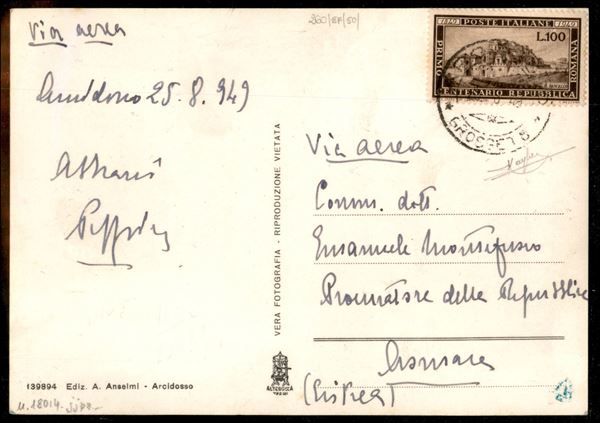 360/EF/50/
Via aerea
1849 POSTE ITALIANE 1949
L.100
PRIMO CENTENARIO REPUBBLICA ROMANA
GROSSETO
Arcidosso 25.8.949
Via aerea
Comm. dott.
Emanuele Montefusco
Procuratore della Repubblica
Asmara
(Eritrea)
VERA FOTOGRAFIA - RIPRODUZIONE VIETATA
139894 Ediz. A. Anselmi - Arcidosso
ALTEROCCA
TERNI